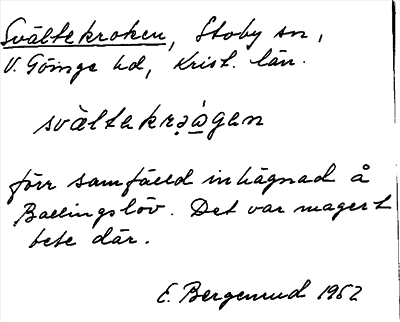 Svältekroken, Stoby sn,
V. Göinge hd, Krist. län.
svàltakrǝ̣ágan
förr samfälld inhägnad å
Ballingslöv. Det var magert
bete där.
E. Bergenrud 1952